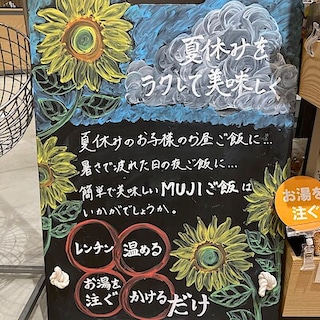 夏休みを
ラクして美味しく
夏休みのお子様のお昼ご飯に…
暑さで疲れた日の夜ご飯に…
簡単で美味しいMUJIご飯は
いかがでしょうか。
レンチン
温める
お湯を
注ぐ
かける
だけ
お湯を
注ぐ